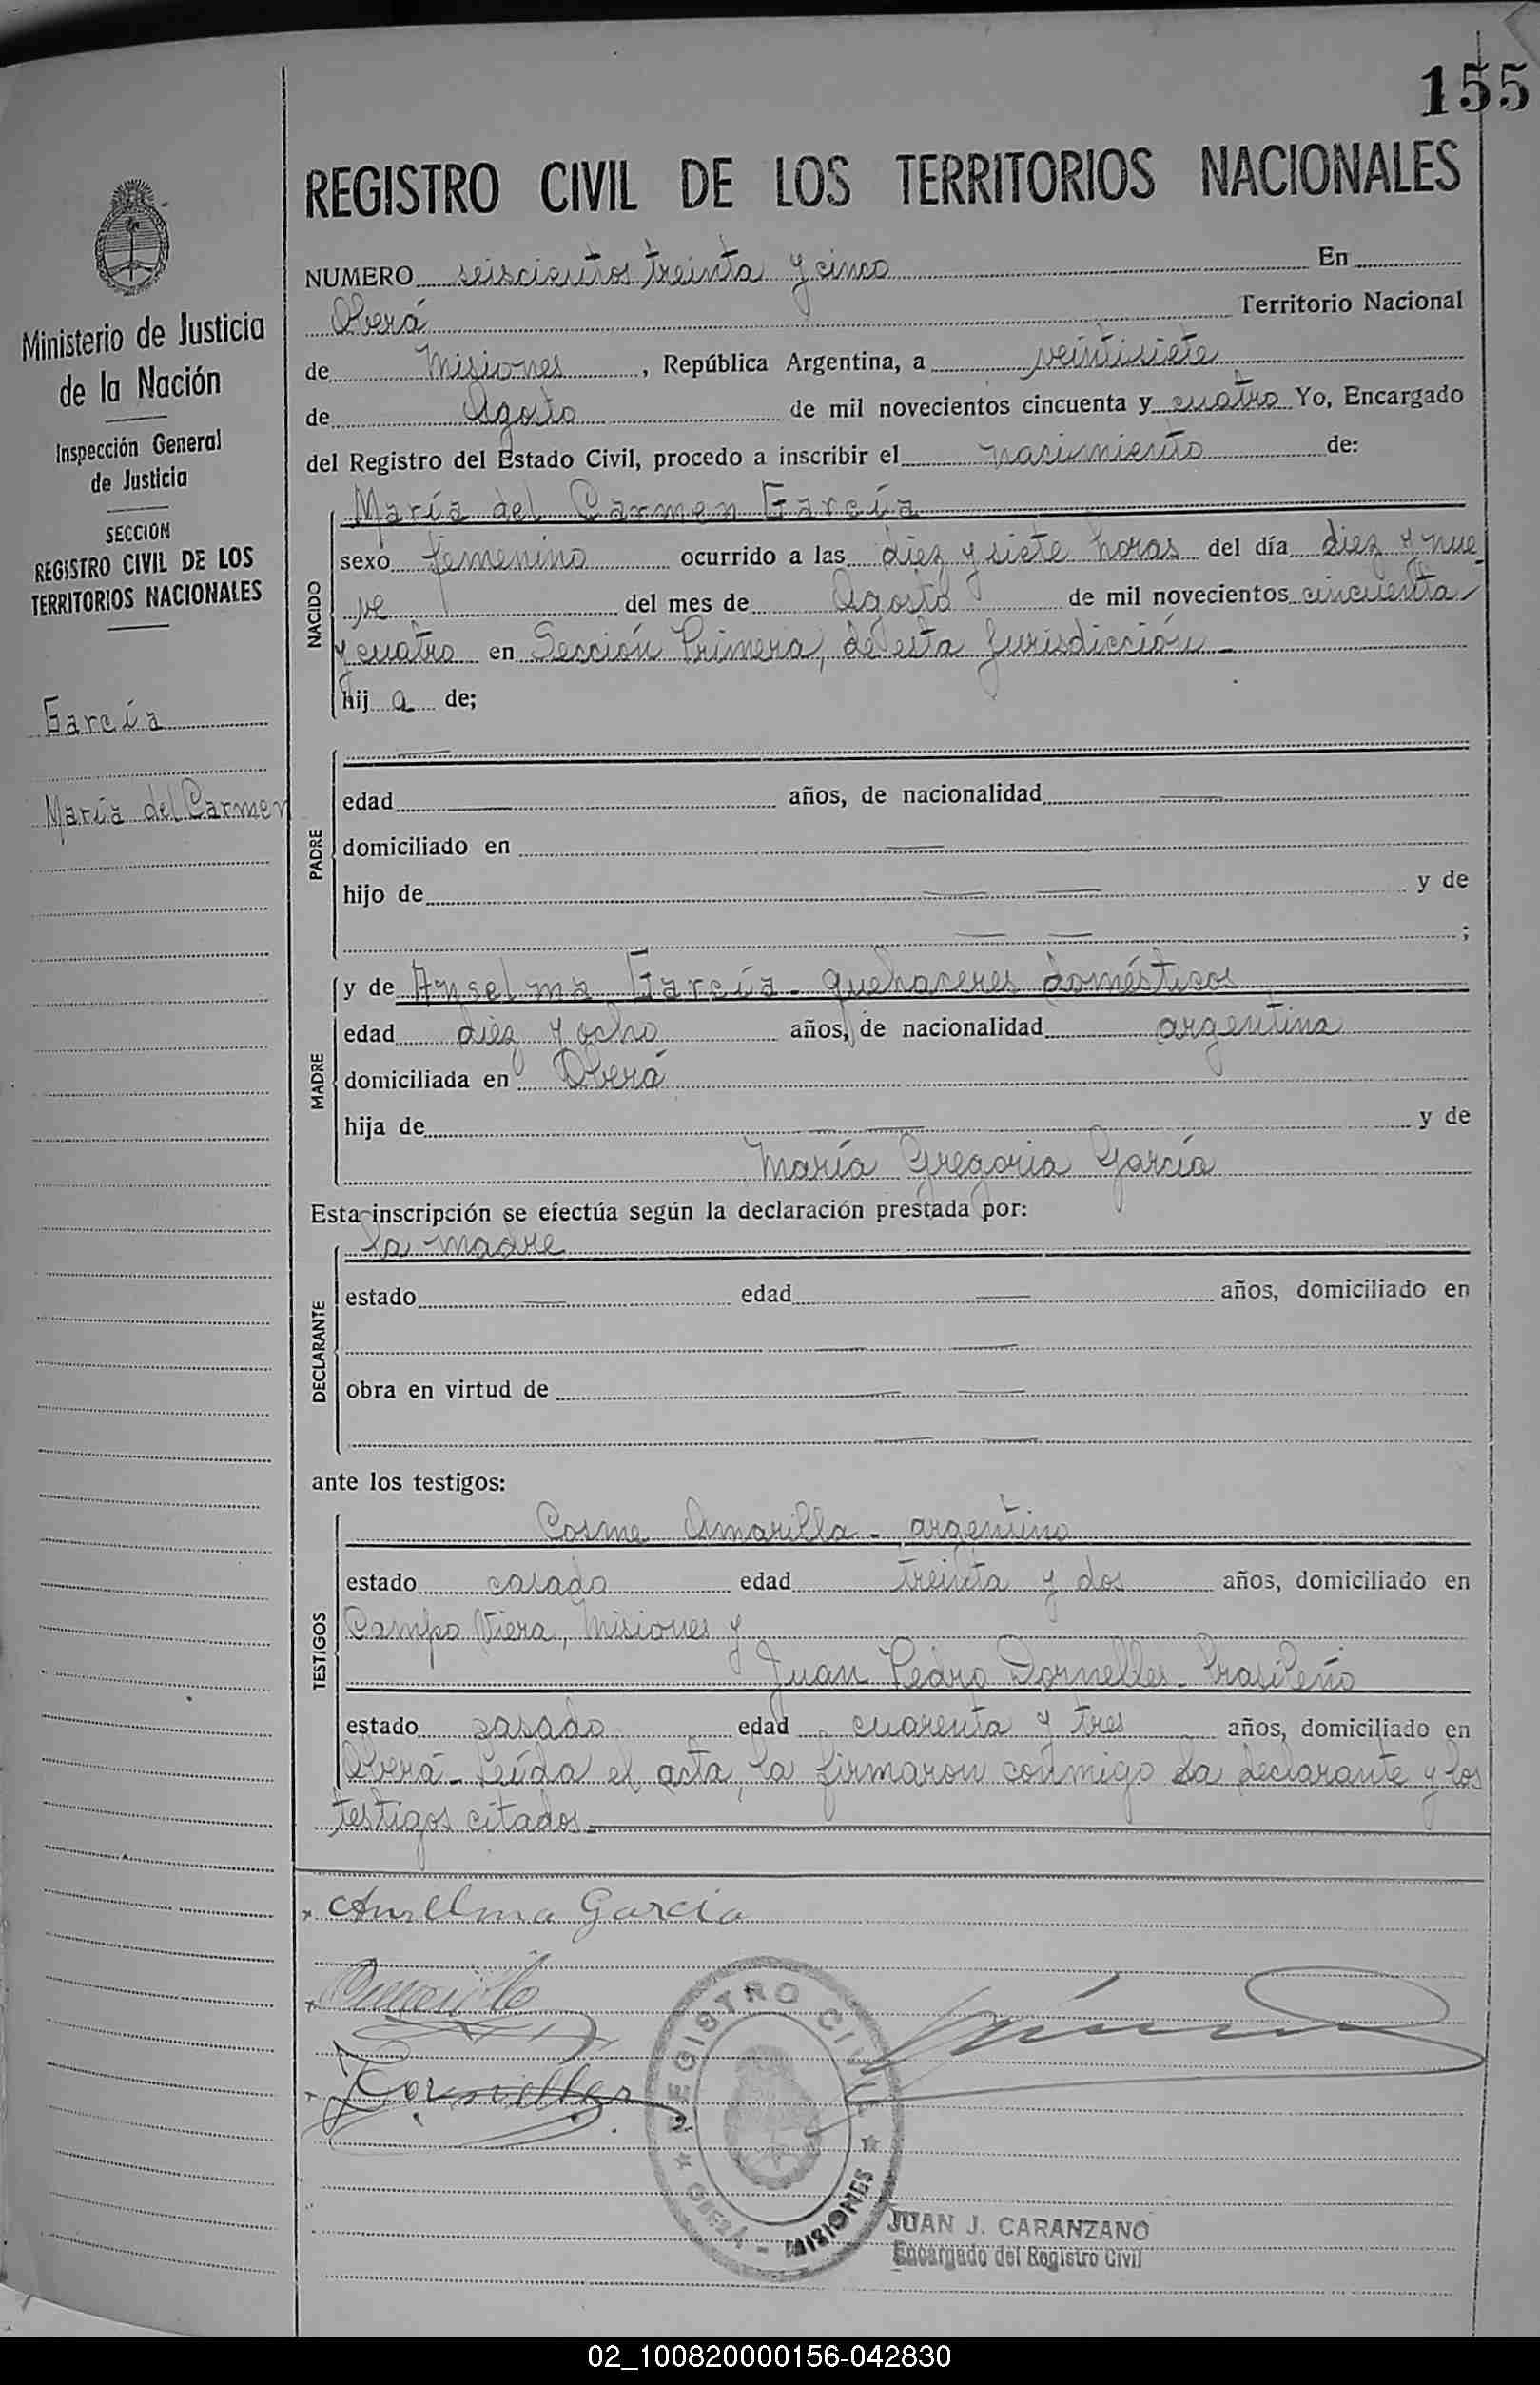 155
REGISTRO CIVIL DE LOS TERRITORIOS NACIONALES
Ministerio de Justicia
de la Nación
Inspección General
de Justicia
SECCION
REGISTRO CIVIL DE LOS
TERRITORIOS NACIONALES
García
María del Carmen
NUMERO seiscientos treinta y cinco En
Oberá Territorio Nacional
de Misiones, República Argentina, a veintisiete
de Agosto de mil novecientos cincuenta y cuatro Yo, Encargado
del Registro del Estado Civil, procedo a inscribir el nacimiento de:
NACIDO
María del Carmen García
sexo femenino ocurrido a las diez y siete horas del día diez y nue
ve del mes de Agosto de mil novecientos cincuenta
y cuatro en Sección Primera, de esta Jurisdicción -
hij a de;
PADRE
edad años, de nacionalidad
domiciliado en
hijo de y de
;
MADRE
y de Anselma García - quehaceres domésticos
edad diez y ocho años, de nacionalidad argentina
domiciliada en Oberá
hija de y de
María Gregoria García
Esta inscripción se efectúa según la declaración prestada por:
DECLARANTE
la madre
estado edad años, domiciliado en
obra en virtud de
ante los testigos:
TESTIGOS
Cosme Amarilla - argentino
estado casado edad treinta y dos años, domiciliado en
Campo Viera, Misiones y
Juan Pedro Dornelles - brasileño
estado casado edad cuarenta y tres años, domiciliado en
Oberá - Leída el acta, la firmaron conmigo la declarante y los
testigos citados.-
Anselma García
Amarilla
Dornelles
REGISTRO CIVIL
OBERÁ - MISIONES
JUAN J. CARANZANO
Encargado del Registro Civil
02_100820000156-042830